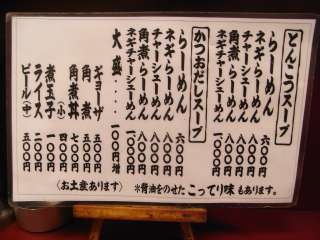 とんこつスープ
らーめん 六〇〇円
ネギらーめん 八〇〇円
チャーシューめん 八〇〇円
角煮らーめん 八〇〇円
ネギチャーシューめん 一〇〇〇円
かつおだしスープ
らーめん 六〇〇円
ネギらーめん 八〇〇円
チャーシューめん 八〇〇円
角煮らーめん 八〇〇円
ネギチャーシューめん 一〇〇〇円
大盛…一〇〇円増
ギョーザ 五〇〇円
角煮 五〇〇円
角煮丼 七〇〇円
(小) 四〇〇円
煮玉子 一〇〇円
ライス 二〇〇円
ビール(中) 五〇〇円
(お土産あります)
*背油をのせたこってり味もあります。